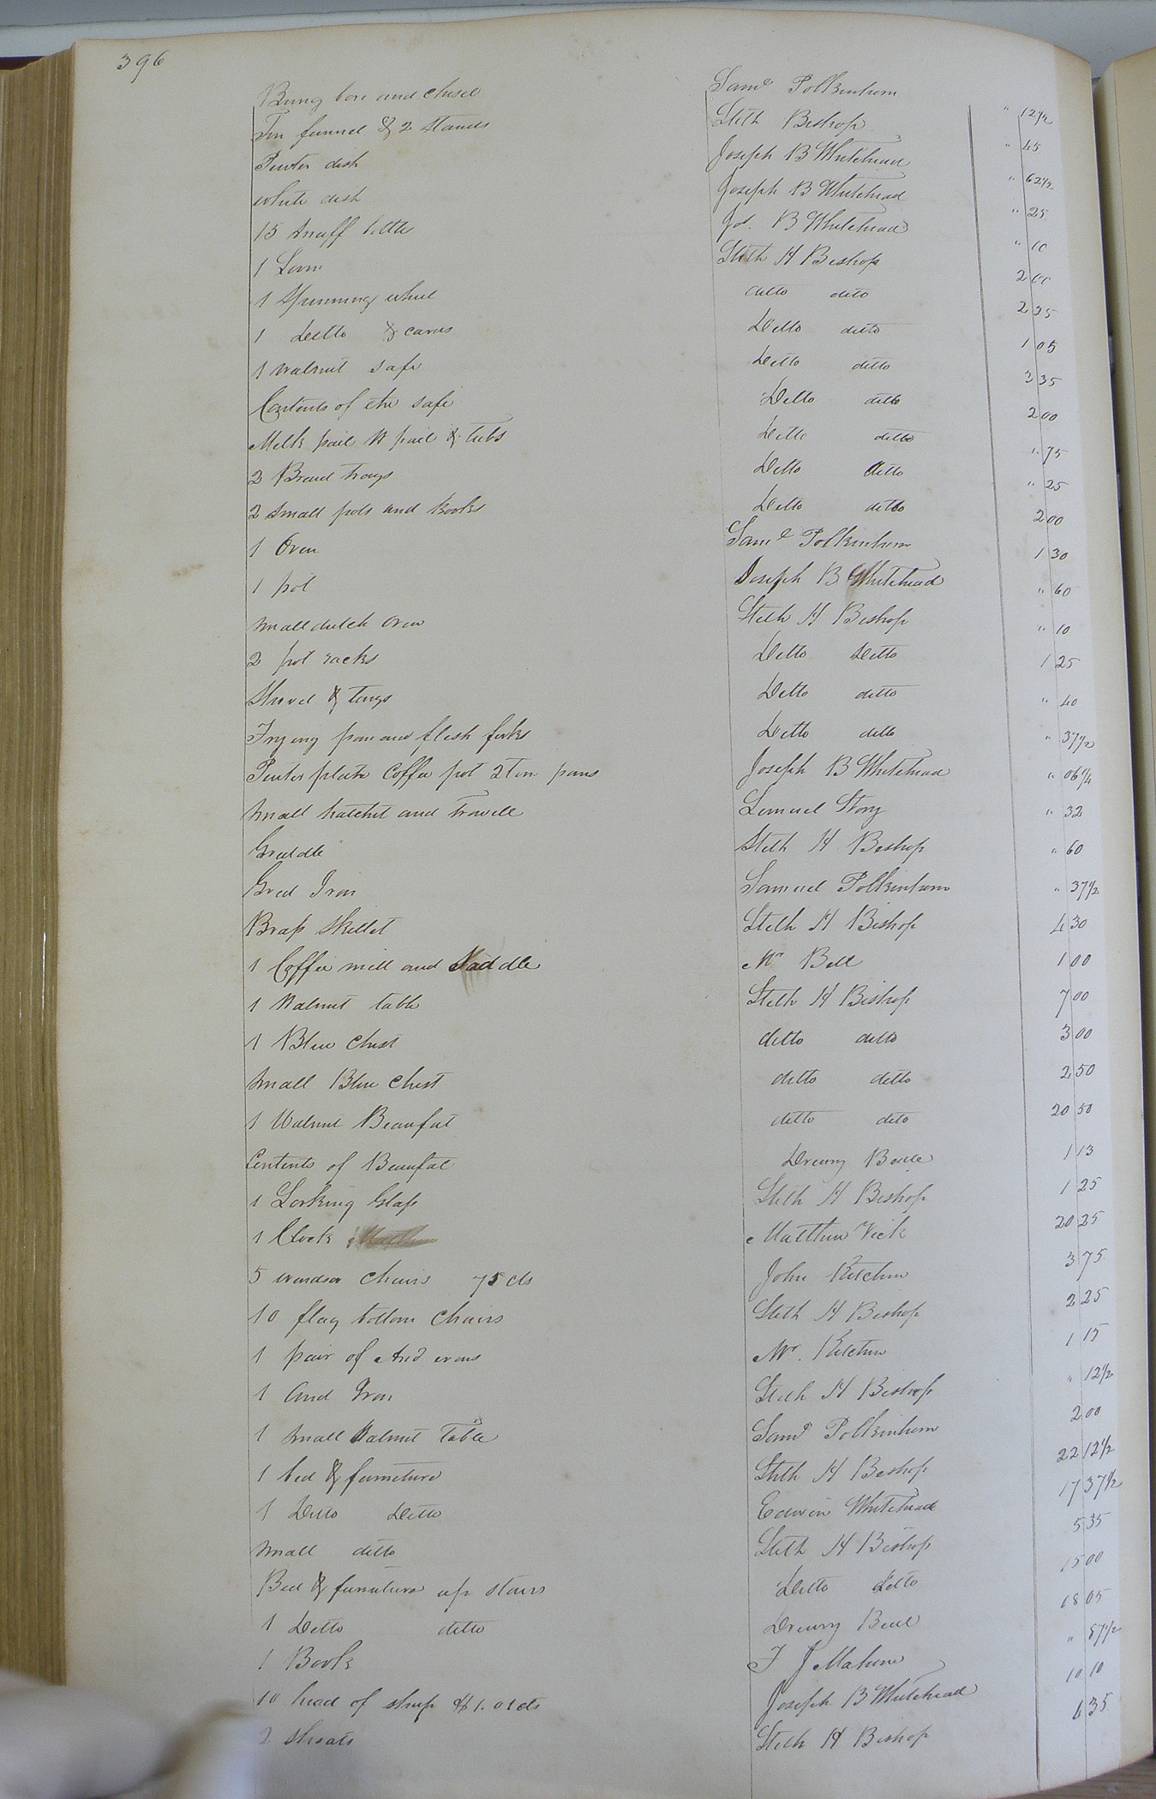 396
Bung bore and chisel Saml Polkinhorn " 12 1/2
Tin funnel & 2 stands Stith Bishop " 45
Pewter dish Joseph B Whitehead " 62 1/2
White dish Joseph B Whitehead " 25
15 snuff bottles Jos. B Whitehead " 10
1 Loom Stith H Bishop 2 00
1 Spinning wheel ditto ditto 2 25
1 Ditto & cards Ditto ditto 1 05
1 walnut safe Ditto ditto 3 35
Contents of the safe Ditto ditto 2 00
Milk pail W pail & tubs Ditto ditto " 75
2 Bread trays Ditto ditto " 25
2 small pots and hooks Ditto ditto 2 00
1 Oven Saml Polkinhorn 1 30
1 pot Joseph B Whitehead " 60
Small dutch oven Stith H Bishop " 10
2 pot racks Ditto Ditto 1 25
Shovel & tongs Ditto ditto " 40
Frying pan and flesh forks Ditto ditto " 37 1/2
Pewter plate Coffee pot 2 Tin pans Joseph B Whitehead " 06 1/4
Small hatchet and Trowell Lemuel Story " 32
Griddle Stith H Bishop " 60
Grid Iron Samuel Polkinhorn " 37 1/2
Brass Skillet Stith H Bishop 4 30
1 Coffee mill and Saddle Mr Bell 1 00
1 Walnut table Stith H Bishop 7 00
1 Blue Chest ditto ditto 3 00
Small Blue Chest ditto ditto 2 50
1 Walnut Beaufat ditto ditto 20 50
Contents of Beaufat Drewry Beale 1 13
1 Looking Glass Stith H Bishop 1 25
1 Clock Matthew Vick 20 25
5 windsor chairs 75 cts John Kitchen 3 75
10 flag bottom Chairs Stith H Bishop 2 25
1 pair of And irons Mr. Kitchen 1 15
1 And Iron Stith H Bishop " 12 1/2
1 Small Walnut Table Saml Polkinhorn 2 00
1 bed & furniture Stith H Bishop 22 12 1/2
1 Ditto Ditto Edwin Whitehead 17 37 1/2
Small ditto Stith H Bishop 5 35
Bed & furniture up stairs Ditto Ditto 15 00
1 Ditto ditto Drewry Beal 18 05
1 Book T J Mahone " 87 1/2
10 head of sheep $1.01 cts Joseph B Whitehead 10 10
2 Shoats Stith H Bishop 6 35